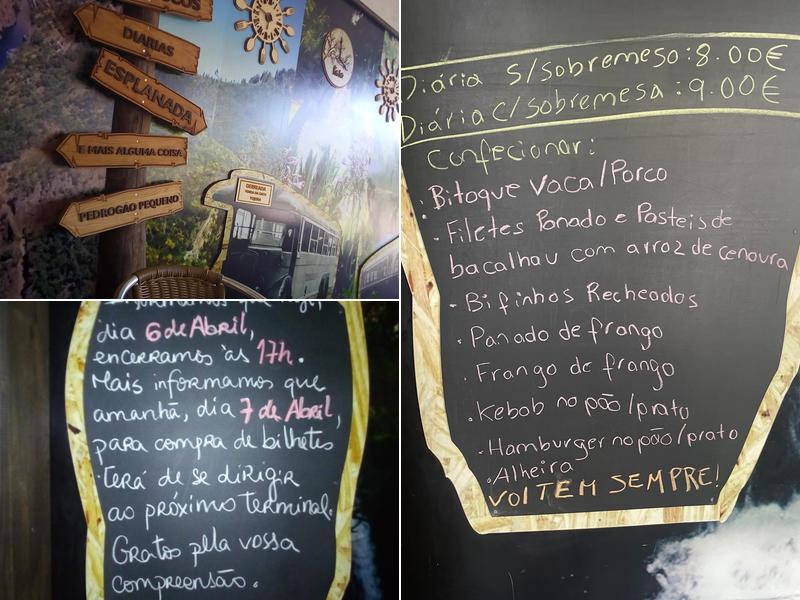 DIARIAS
ESPLANADA
E MAIS ALGUMA COISA
PEDROGÃO PEQUENO
DEBREADA
dia 6 de Abril,
encerramos às 17h.
Mais informamos que
amanhã, dia 7 de Abril,
para compra de bilhetes
terá de se dirigir
ao próximo terminal.
Gratos pela vossa
compreensão.
Diária S/Sobremeso: 8.00€
Diária C/Sobremesa: 9.00€
Confecionar:
. Bitoque Vaca/Porco
. Filetes Panado e Pasteis de
bacalhau com arroz de cenoura
. Bifinhos Recheados
. Panado de frango
. Frango de frango
. Kebob no pão/prato
. Hamburger no pão/prato
. Alheira
VOLTEM SEMPRE!